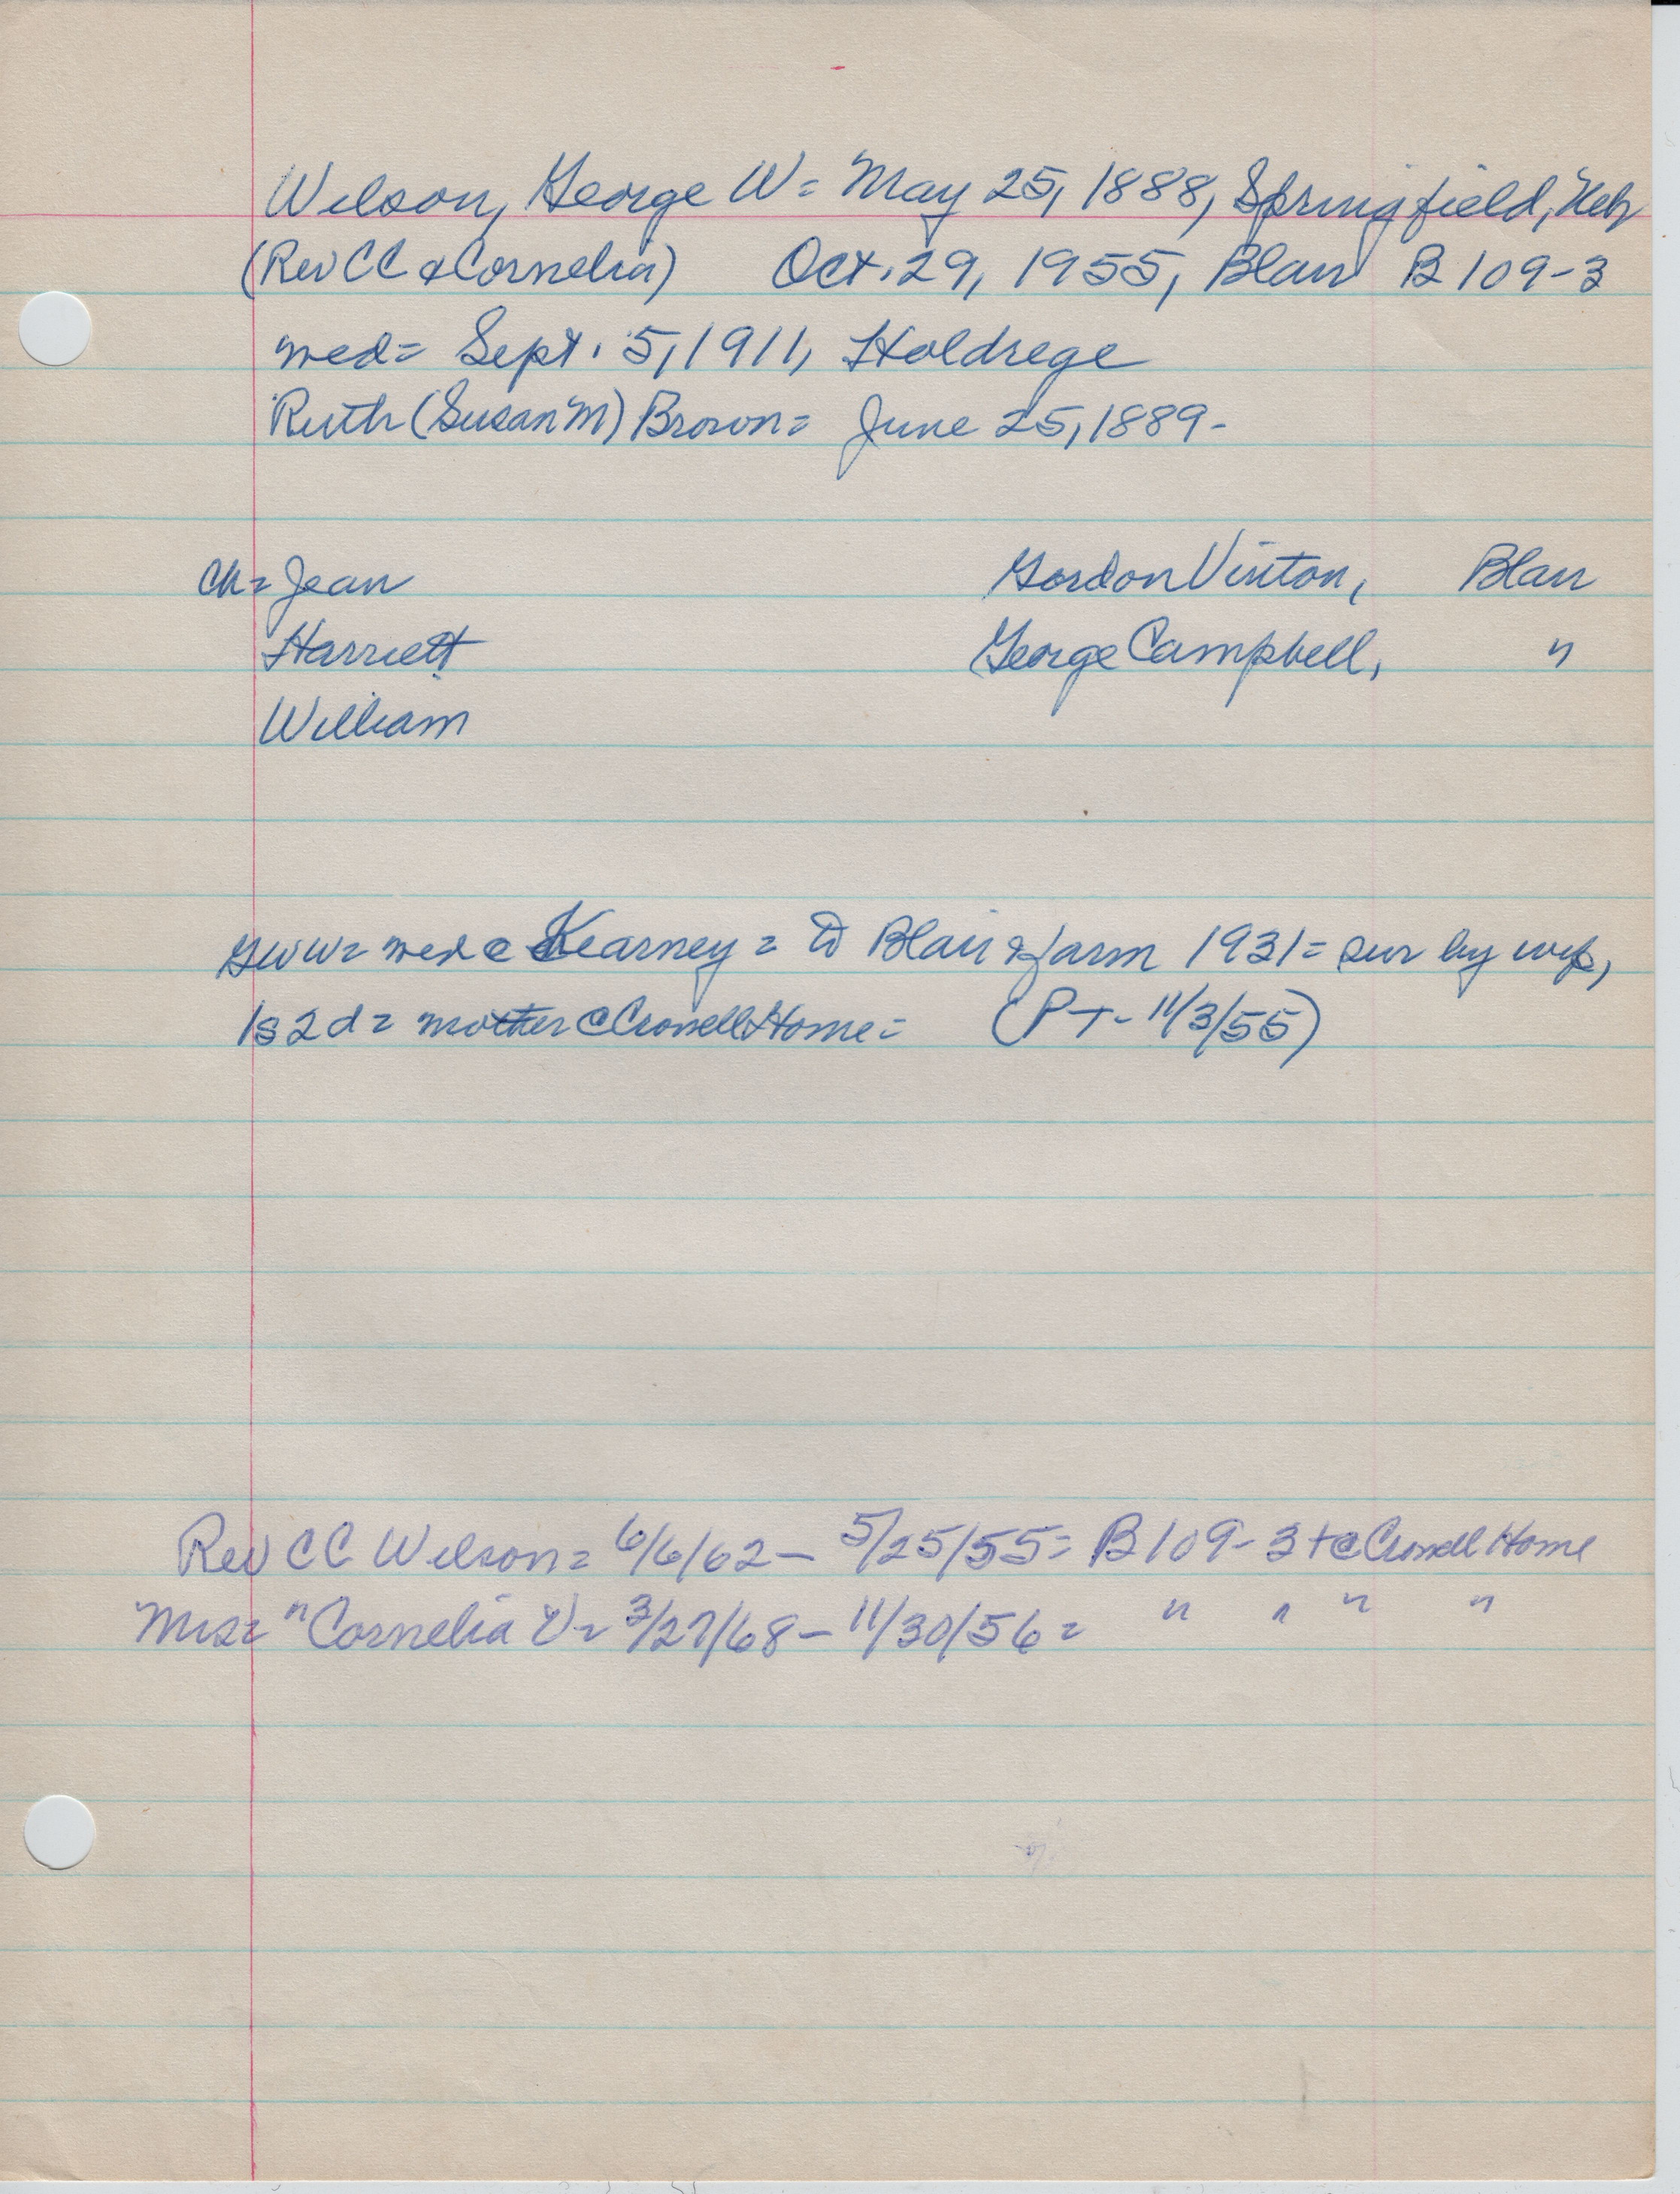 Wilson, George W = May 25, 1888, Springfield, Neb
(Rev CC & Cornelia) Oct. 29, 1955, Blair B 109-3
med = Sept. 5, 1911, Holdrege
Ruth (Susan M) Brown = June 25, 1889 -
Ch = Jean Gordon Vinton, Blair
Harriett George Campbell, "
William
GWW = med @ Kearney = to Blair & farm 1931 = sur by wife,
1s 2d = mother @ Crowell Home = (PT - 11/3/55)
Rev CC Wilson = 6/6/62 - 5/25/55 = B 109-3 + @ Crowell Home
Mrs = " Cornelia V = 3/27/68 - 11/30/56 = " " " "